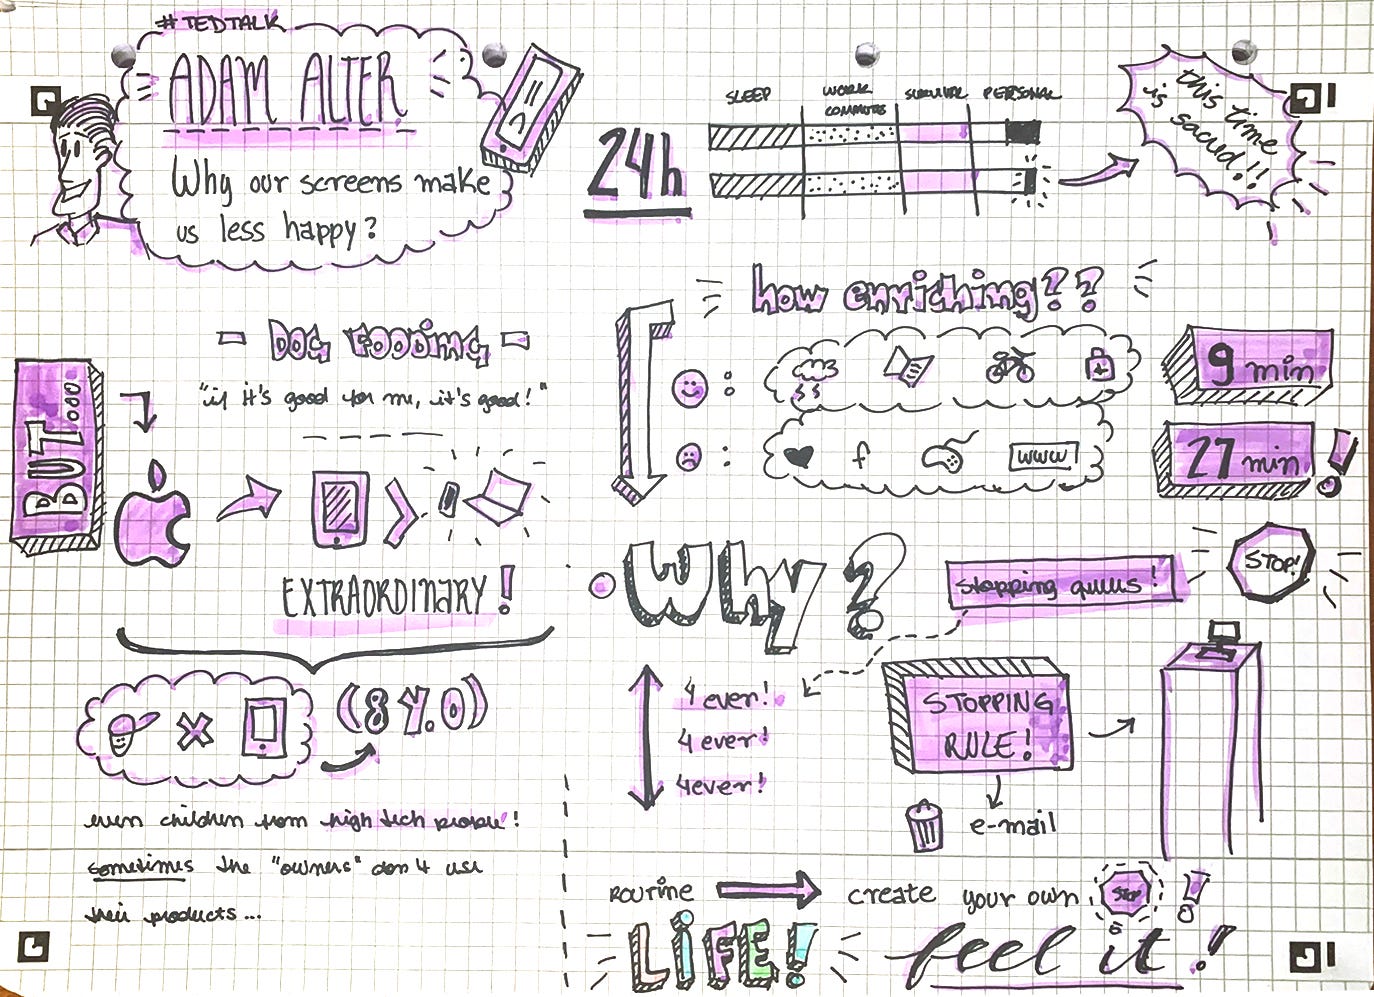 #TEDTALK
ADAM ALTER
Why our screens make
us less happy?
24h
SLEEP
WORK
COMMUTE
SURVIVAL
PERSONAL
this time
is sacred!!
how enriching??
9 min
www
27 min!
DOG FOODING
"if it's good for me, it's good!"
BUT...
EXTRAORDINARY!
even children from high tech people!
sometimes the "owners" don't use
their products...
Why?
stopping queues!
STOP!
4 ever!
4 ever!
4ever!
STOPPING
RULE!
e-mail
ROUTINE
create your own STOP!
LiFE!
feel it!